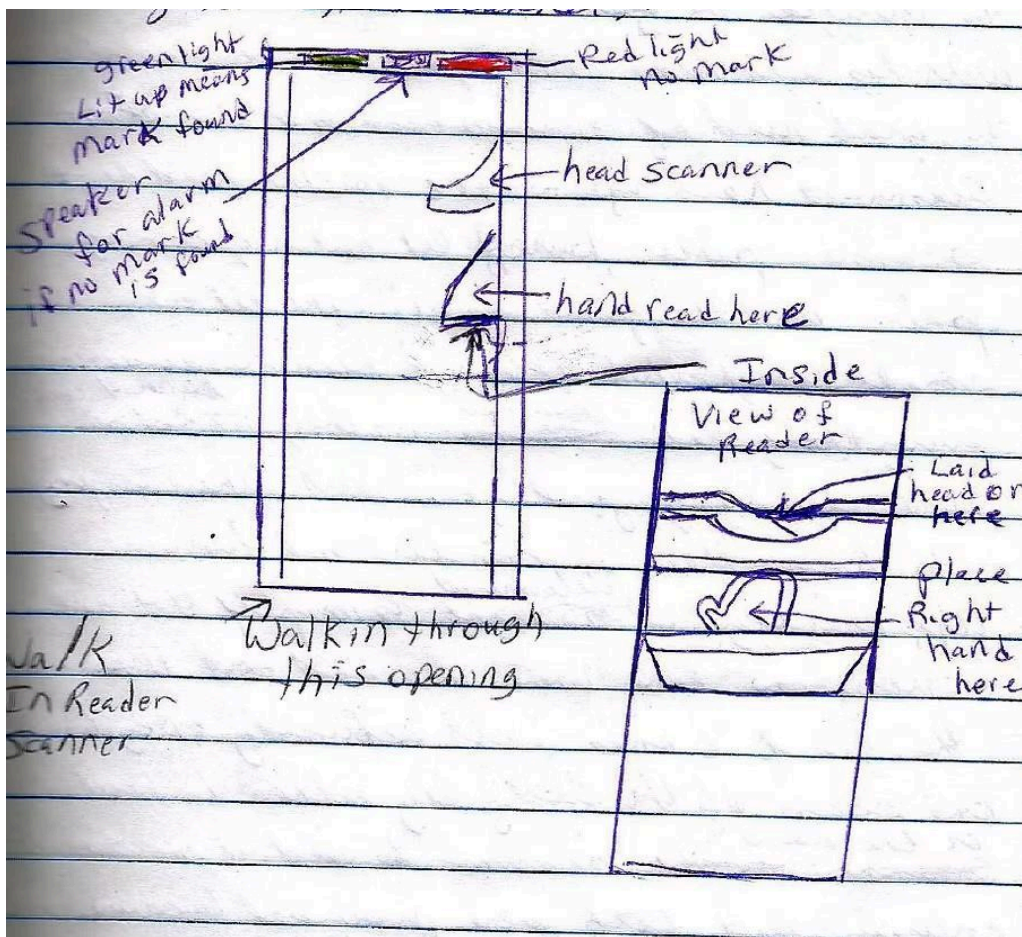 green light
Lit up means
mark found
Red light
no mark
Speaker
for alarm
if no mark
is found
head scanner
hand read here
Inside
View of
Reader
Laid
head or
here
place
Right
hand
here
Walk in through
this opening
Walk
In Reader
Scanner